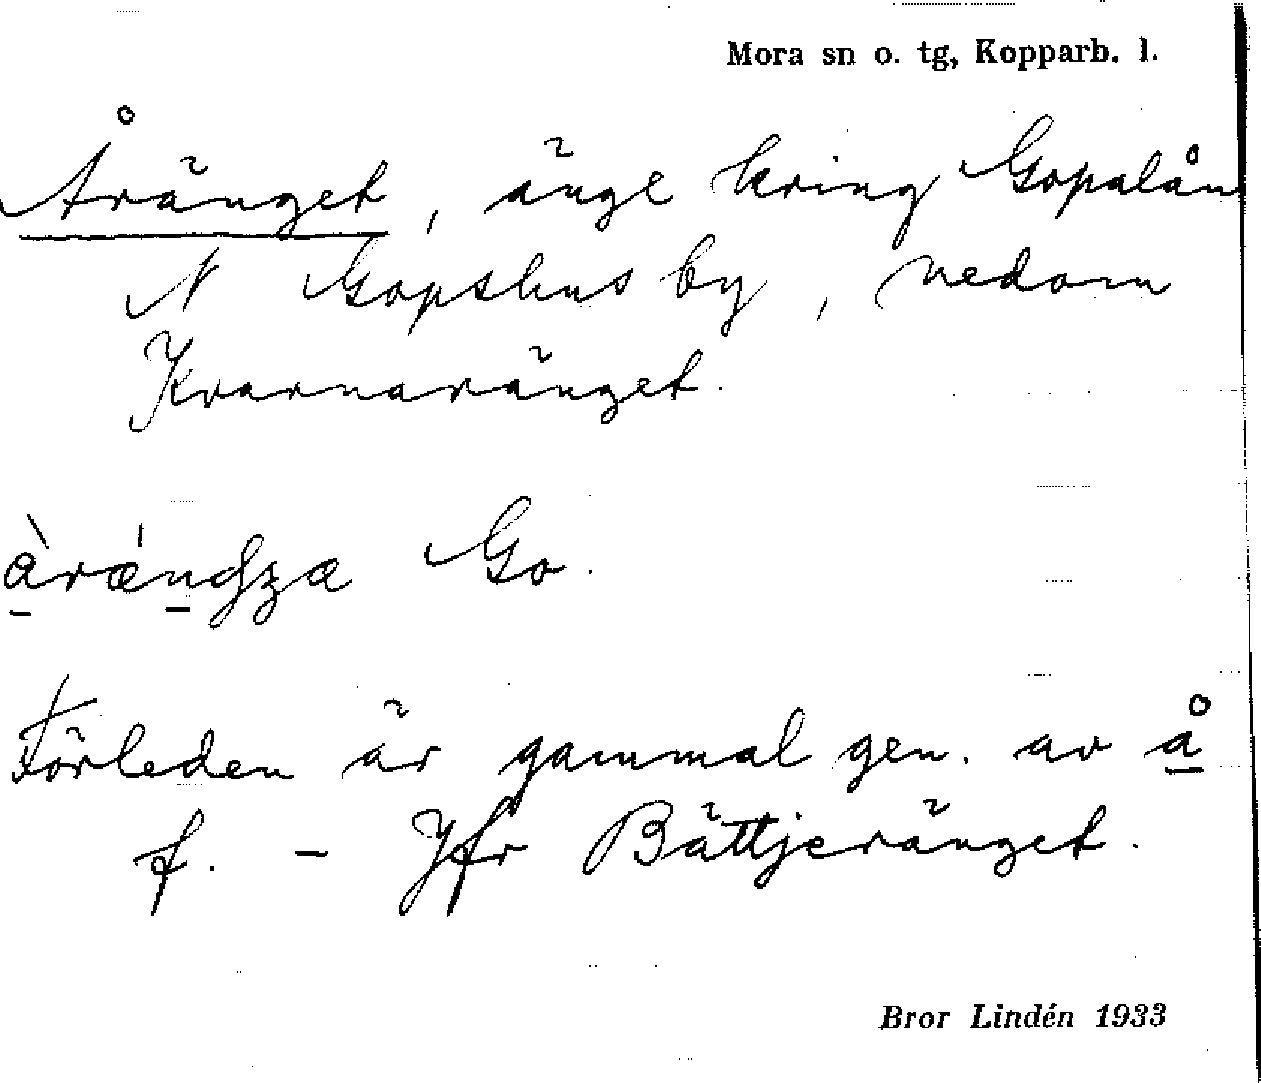 Mora sn o. tg, Kopparb. l.
Åränget, änge kring Gopalån
N Gopshus by, nedom
Kvarnaränget.
àrǽndʒæ Go.
Förleden är gammal gen. av å
f. – Jfr Bättjeränget.
Bror Lindén 1933